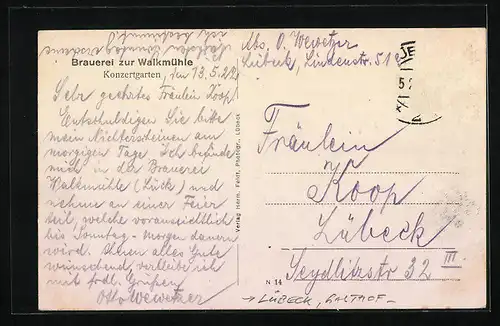 Nächsten Sonntag erscheine
ich bestimmt!
Brauerei zur Walkmühle
Konzertgarten, den 13.5.22
Sehr geehrtes Fräulein Koop!
Entschuldigen Sie bitte
mein Nichterscheinen am
morgigen Tage. Ich befinde
mich in der Brauerei
Walkmühle (Lück) und
nehme an einer Feier
teil, welche voraussichtlich
bis Sonntag-morgen dauern
wird. Ihnen alles Gute
wünschend, verbleibe ich
mit frdl. Grüßen
Otto Wewetzer
Verlag Herm. Feldt, Photogr., Lübeck
Abs. O. Wewetzer
Lübeck, Lindenstr. 51
Fräulein
Koop
Lübeck
Seydlitzstr 32 III.
N 14
→ LÜBECK, GASTHOF –